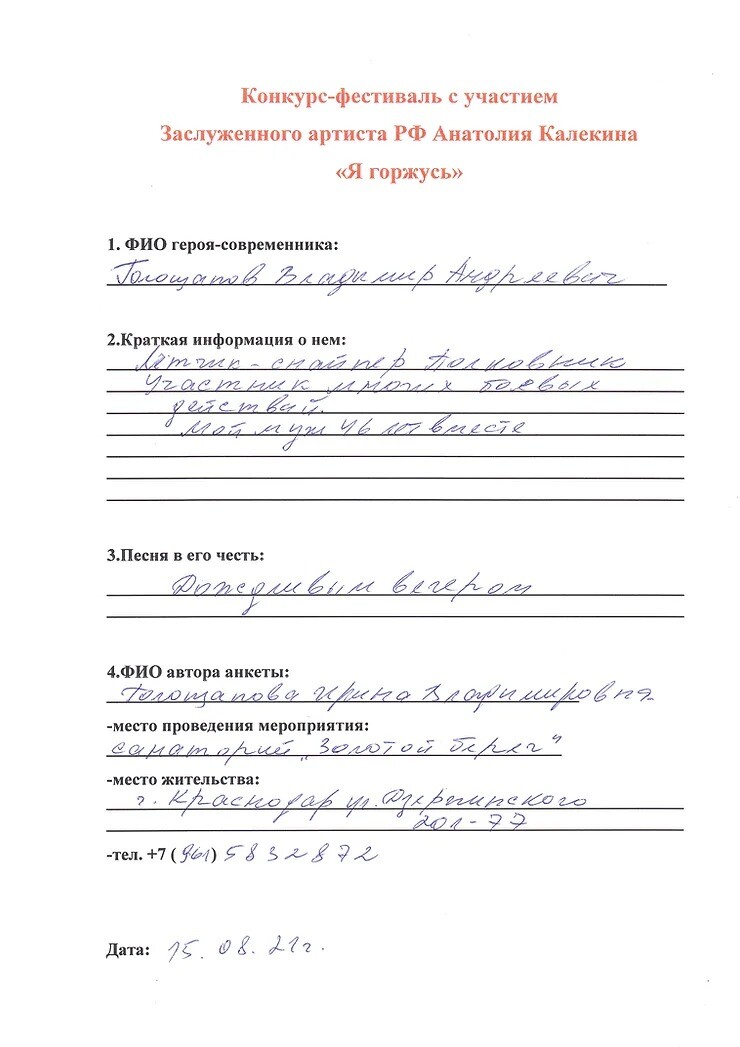 Конкурс-фестиваль с участием
Заслуженного артиста РФ Анатолия Калекина
«Я горжусь»
1. ФИО героя-современника:
Голощапов Владимир Андреевич
2.Краткая информация о нем:
Лётчик-снайпер Полковник
Участник многих боевых
действий.
Мой муж 46 лет вместе
3.Песня в его честь:
Дождливым вечером
4.ФИО автора анкеты:
Голощапова Ирина Владимировна
-место проведения мероприятия:
санаторий „Золотой берег"
-место жительства:
г. Краснодар ул. Дзержинского
201-77
-тел. +7 (961) 5832872
Дата: 15.08.21г.